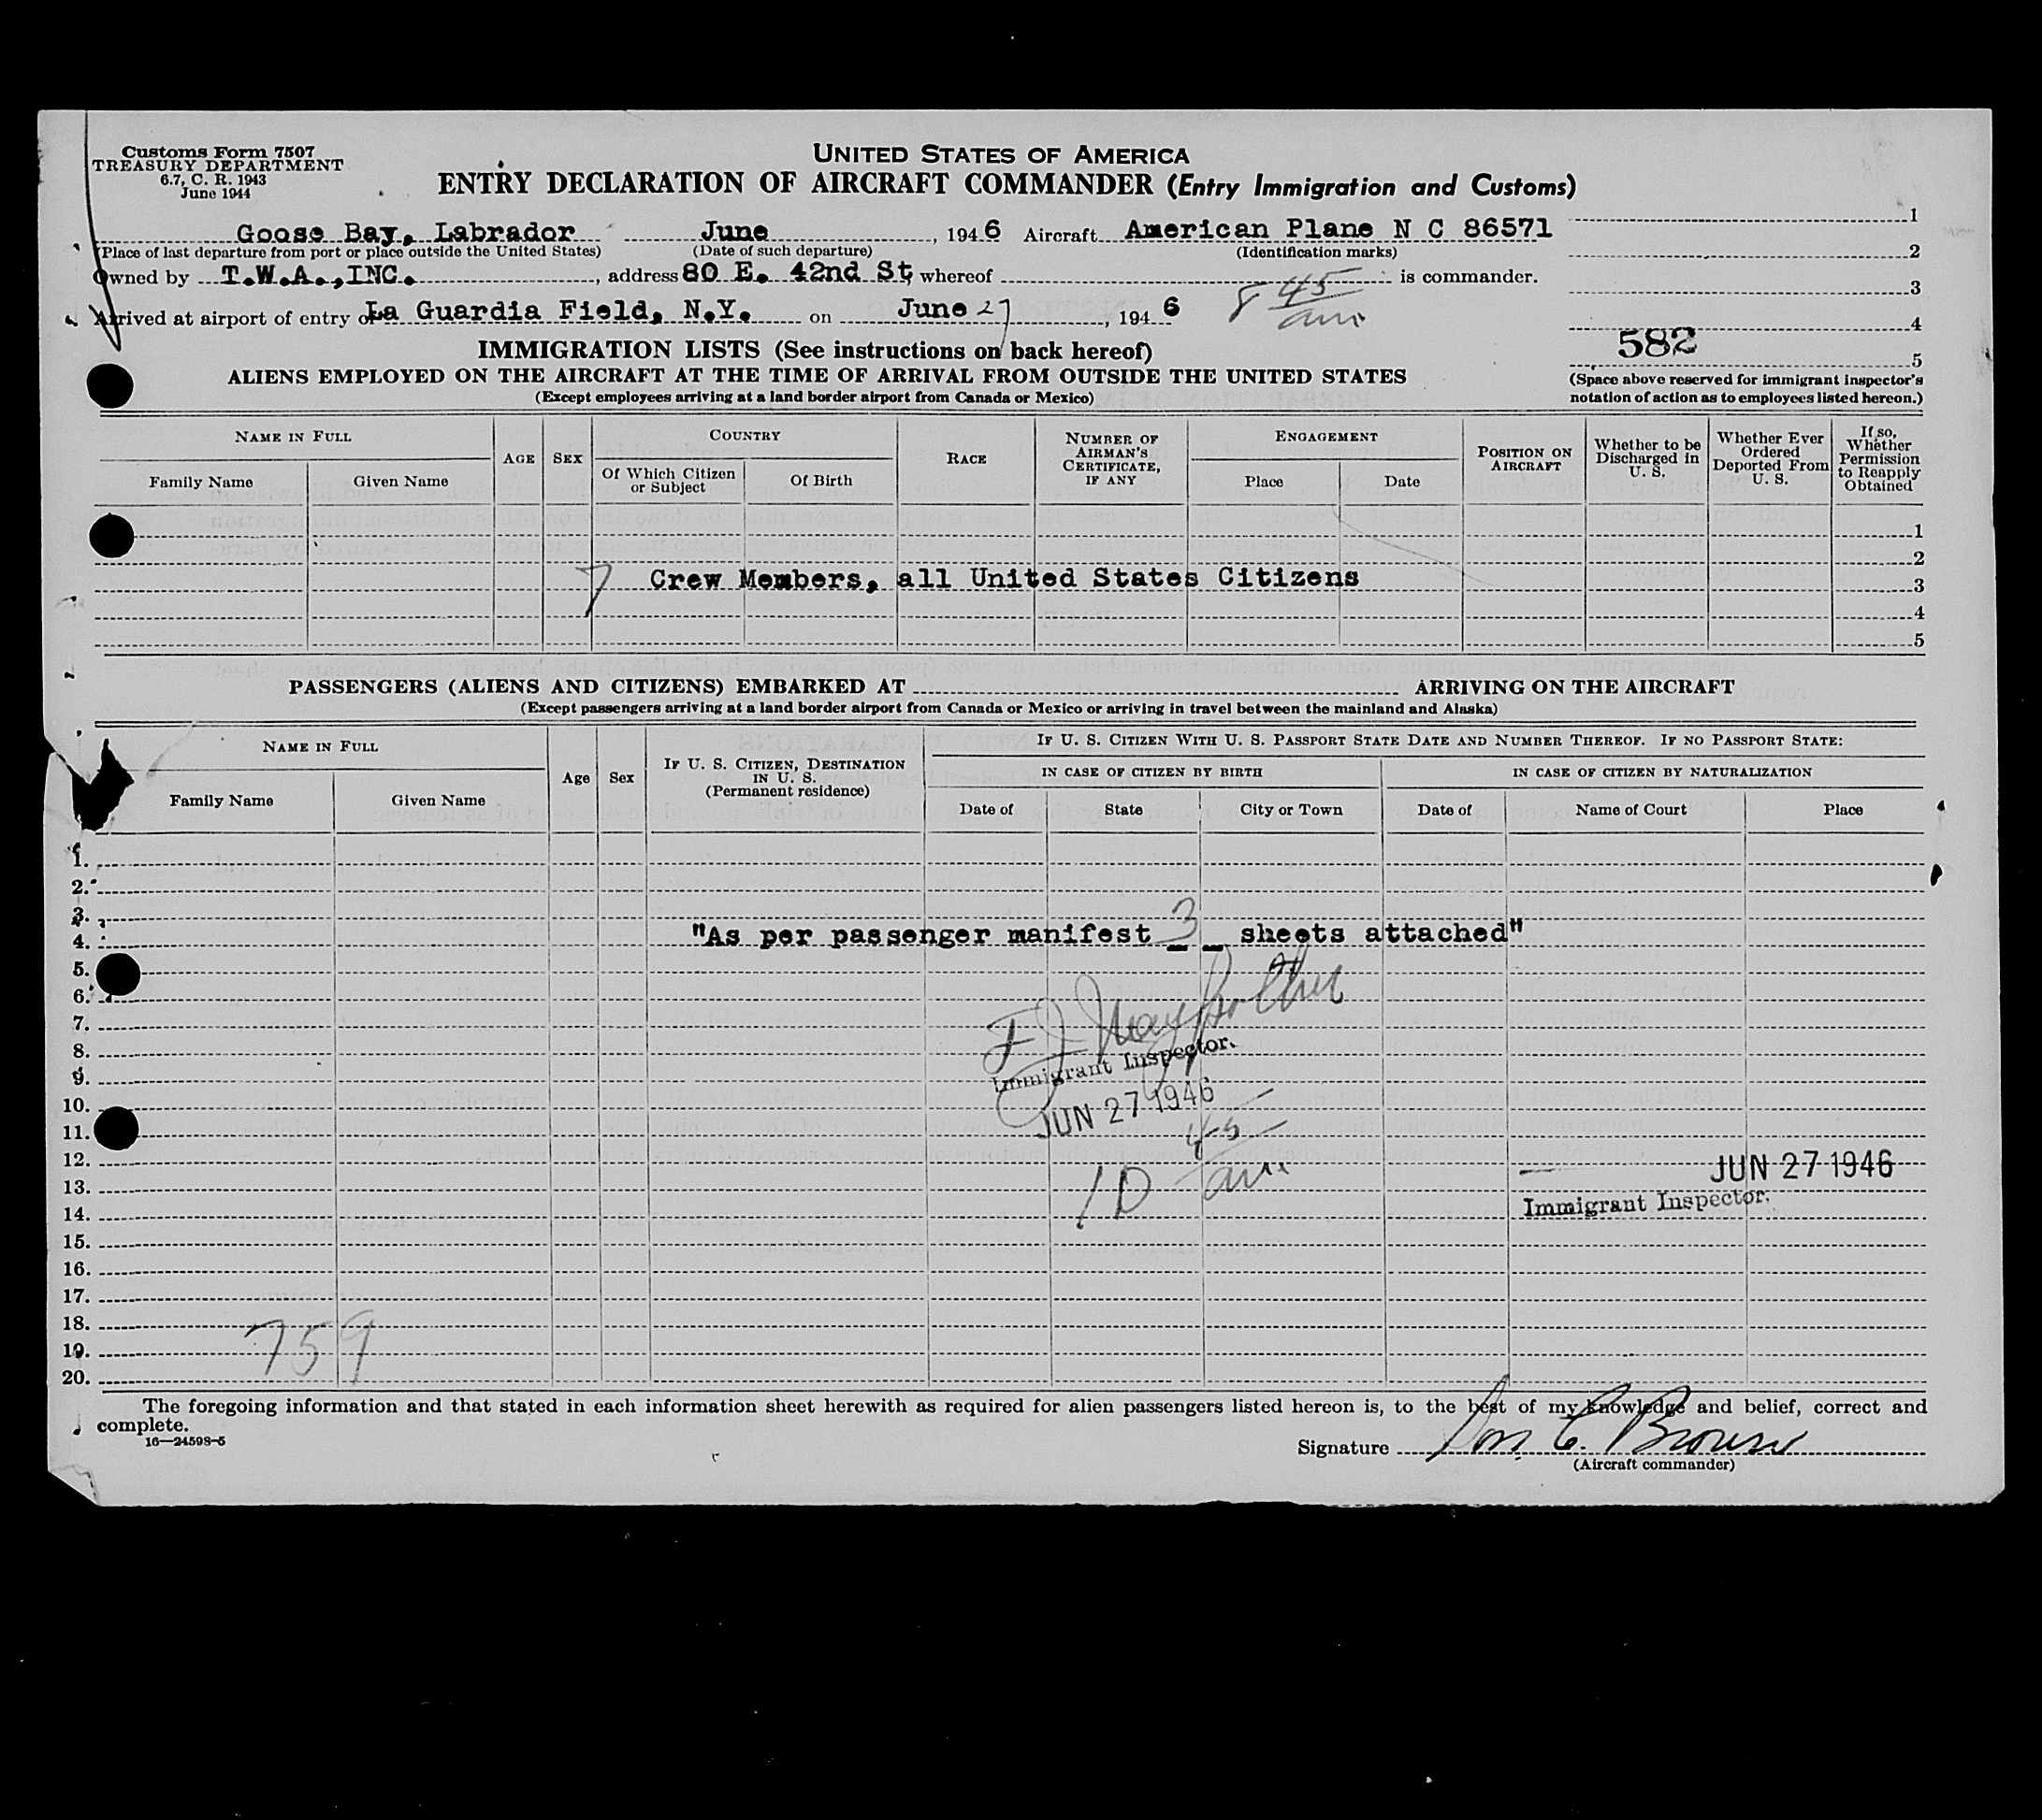 Customs Form 7507
TREASURY DEPARTMENT
6.7, C. R. 1943
June 1944
UNITED STATES OF AMERICA
ENTRY DECLARATION OF AIRCRAFT COMMANDER (Entry Immigration and Customs)
Goose Bay, Labrador June, 1946 Aircraft American Plane N C 86571
(Place of last departure from port or place outside the United States) (Date of such departure) (Identification marks)
Owned by T.W.A.,INC., address 80 E. 42nd St, whereof is commander.
Arrived at airport of entry of La Guardia Field, N.Y. on June 27, 1946 8 45/am
1
2
3
4
582
5
(Space above reserved for immigrant inspector's
notation of action as to employees listed hereon.)
IMMIGRATION LISTS (See instructions on back hereof)
ALIENS EMPLOYED ON THE AIRCRAFT AT THE TIME OF ARRIVAL FROM OUTSIDE THE UNITED STATES
(Except employees arriving at a land border airport from Canada or Mexico)
NAME IN FULL
Family Name Given Name
AGE
SEX
COUNTRY
Of Which Citizen or Subject
Of Birth
RACE
NUMBER OF AIRMAN'S CERTIFICATE, IF ANY
ENGAGEMENT
Place Date
POSITION ON AIRCRAFT
Whether to be Discharged in U. S.
Whether Ever Ordered Deported From U. S.
If so, Whether Permission to Reapply Obtained
1
2
7 Crew Members, all United States Citizens 3
4
5
PASSENGERS (ALIENS AND CITIZENS) EMBARKED AT ARRIVING ON THE AIRCRAFT
(Except passengers arriving at a land border airport from Canada or Mexico or arriving in travel between the mainland and Alaska)
NAME IN FULL
Family Name Given Name
Age
Sex
IF U. S. CITIZEN, DESTINATION IN U. S.
(Permanent residence)
IF U. S. CITIZEN WITH U. S. PASSPORT STATE DATE AND NUMBER THEREOF. IF NO PASSPORT STATE:
IN CASE OF CITIZEN BY BIRTH IN CASE OF CITIZEN BY NATURALIZATION
Date of State City or Town Date of Name of Court Place
1.
2.
3.
4. "As per passenger manifest 3 sheets attached"
5.
6.
7.
8.
Immigrant Inspector.
9.
10. JUN 27 1946
11.
10 45/am
12. JUN 27 1946
13.
14. Immigrant Inspector.
15.
16.
17.
18.
759
19.
20.
The foregoing information and that stated in each information sheet herewith as required for alien passengers listed hereon is, to the best of my knowledge and belief, correct and
complete.
16—24598-5
Signature C. Brown
(Aircraft commander)